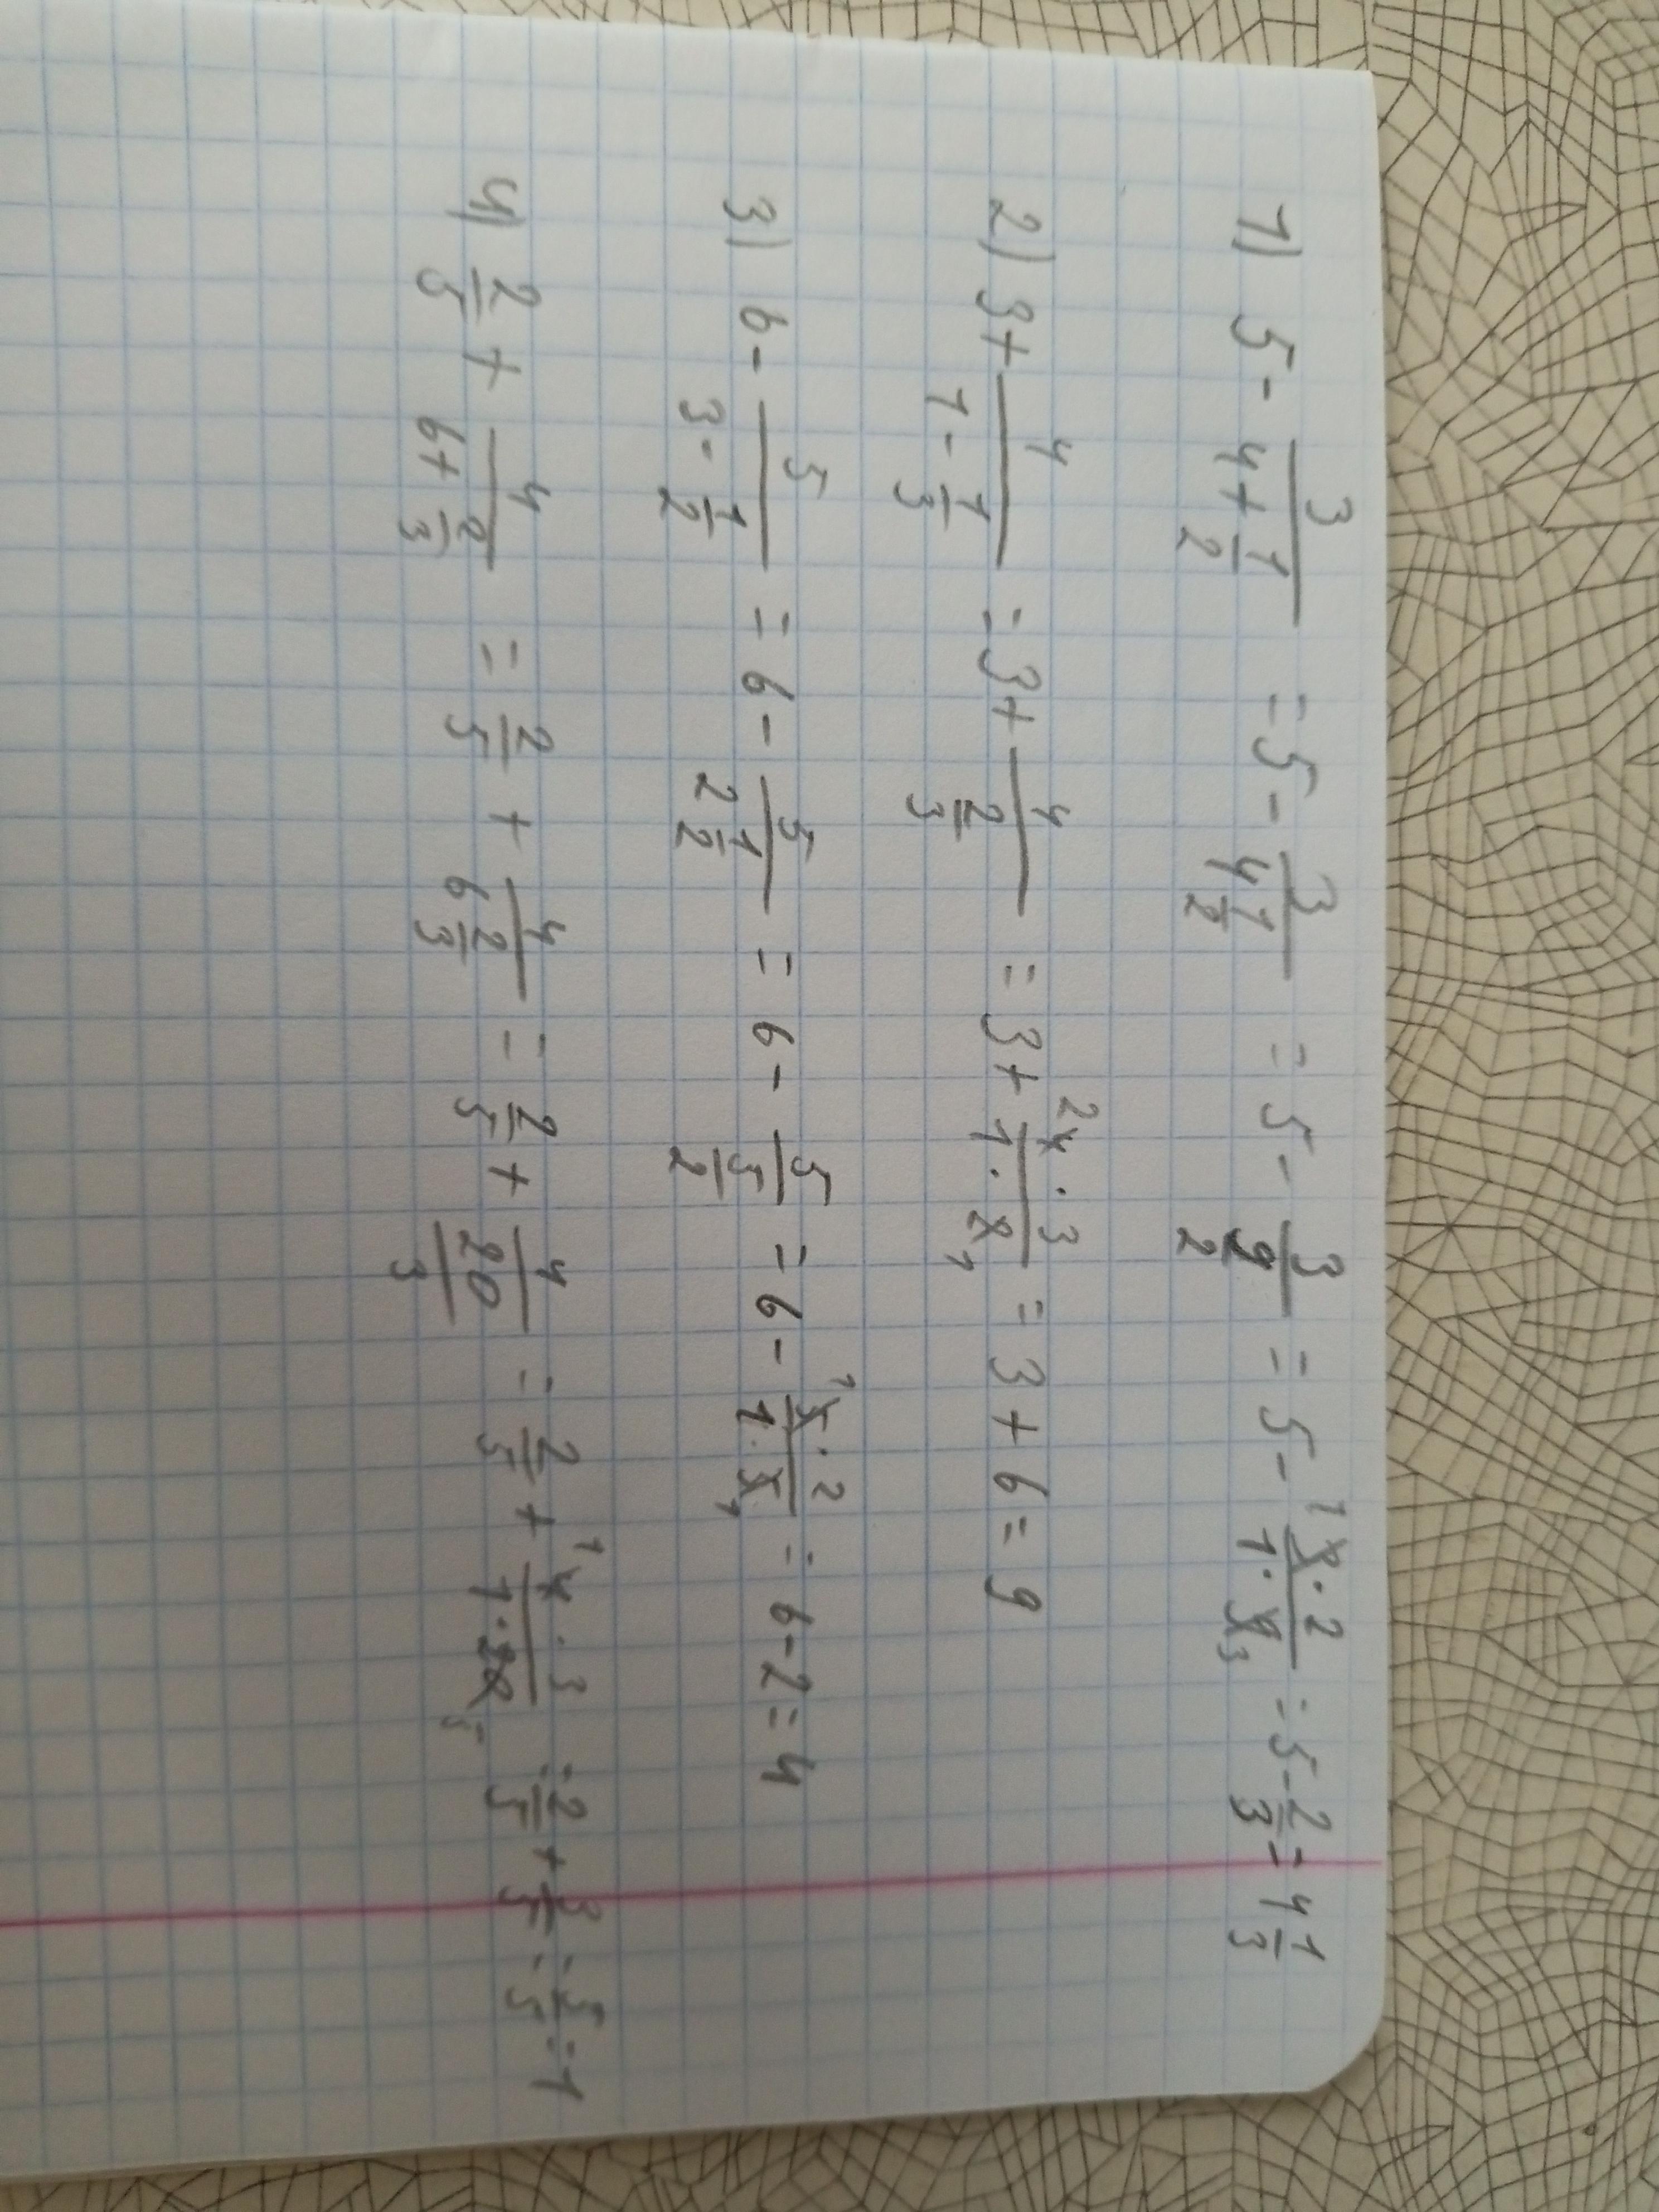 1) 5 - 3/(4 + 1/2) = 5 - 3/(4 1/2) = 5 - 3/(9/2) = 5 - (3 · 2)/(1 · 9) = 5 - 2/3 = 4 1/3
2) 3 + 4/(1 - 1/3) = 3 + 4/(2/3) = 3 + (4 · 3)/(1 · 2) = 3 + 6 = 9
3) 6 - 5/(3 - 1/2) = 6 - 5/(2 1/2) = 6 - 5/(5/2) = 6 - (5 · 2)/(1 · 5) = 6 - 2 = 4
4) 2/5 + 4/(6 + 2/3) = 2/5 + 4/(6 2/3) = 2/5 + 4/(20/3) = 2/5 + (4 · 3)/(1 · 20) = 2/5 + 3/5 = 5/5 = 1